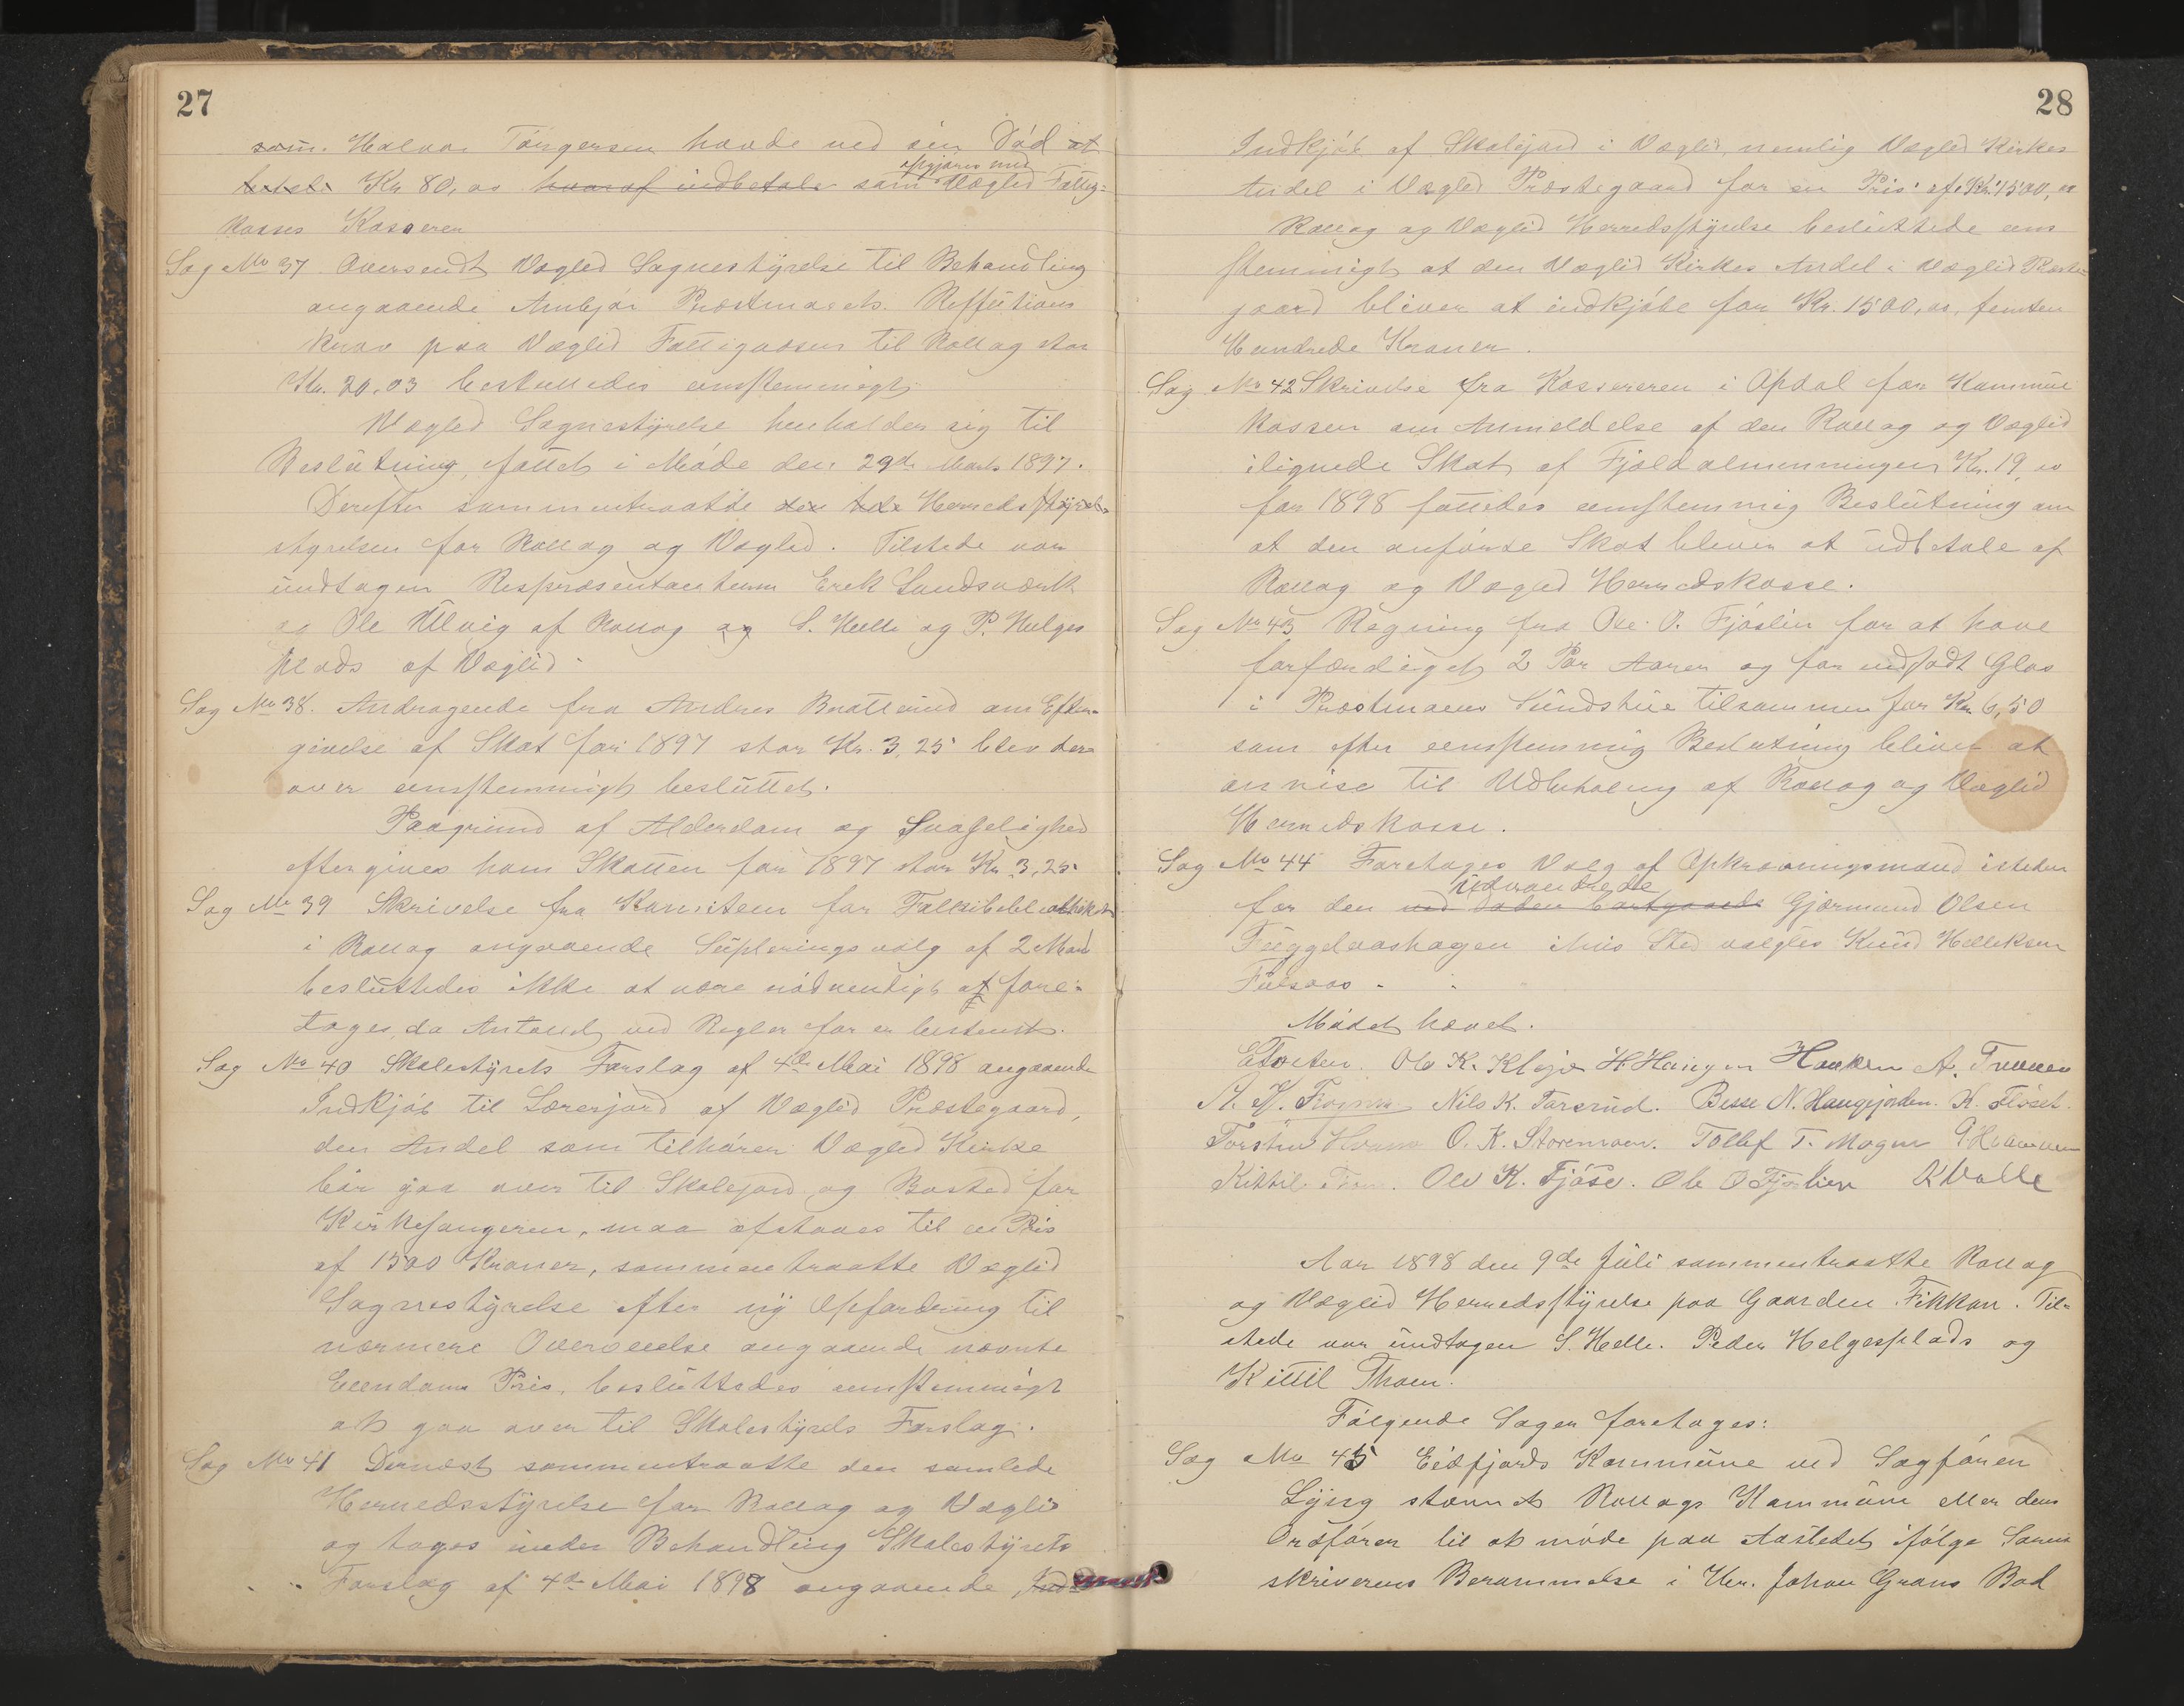 27
som Halvor Torgersen havde ved sin Død at
betale Kr 80,00 hvoraf indbetale som afgjøres med Vægled Fattig-
kasses Kasserer
Sag No 37. Oversendt Vægled Sognestyrelse til Behandling
angaaende Præstmoens Reffutions
krav paa Væglid Fattigvæsen til Rollag stor
Kr. 20,03 besluttedes eenstemmigt
Vægled Sognestyrelse henholder sig til
Beslutning, fattet i Møde den 29de Marts 1897.
Derefter sammentraatte den Herredsstyrels
styrelsen for Rollag og Vægled. Tilstede var
undtagen Repræsentanterne Erek Landsværk
og Ole Ulvig af Rollag og S. Helle og P. Helges
plads af Væglid.
Sag No 38. Andragende fra Andres Bratterud om Efter-
givelse af Skat for 1897 stor Kr. 3,25 blev der-
over eenstemmigt besluttet.
Paagrund af Alderdom og Svagelighed
eftergives ham Skatten for 1897 stor Kr 3,25
Sag No 39 Skrivelse fra Komiteen for Falkibibliotheket
i Rollag angaaende Supleringsvalg af 2 Mænd
besluttedes ikke at være nødvendigt at fore-
tages, da Antallet ved Regler for er bestemt.
Sag No 40 Skolestyrets Forslag af 4de Mai 1898 angaaende
Indkjøb til Lærerjord af Væglid Præstegaard,
den Andel som tilhører Vægled Kirke
bør gaa over til Skolejord og Bosted for
Kirkesangeren, maa afstaaes til en Pris
af 1500 Kroner, sammentraatte Væglid
Sognestyrelse efter ny Opfordring til
nærmere Overveielse angaaende nævnte
Eiendoms Pris, besluttedes eenstemmigt
at gaa over til Skolestyrets Forslag.
Sag No 41 Dernæst sammentraatte den samlede
Herredsstyrelse for Rollag og Væglid
og toges under Behandling Skolestyrets
Forslag af 4de Mai 1898 angaaende Ind-
28
Indkjøb af Skolejord i Væglid, nemlig Væglid Kirkes
Andel i Vægled Præstegaard for en Pris af Kr. 1500,00
Rollag og Væglid Herredsstyrelse besluttede een
stemmigt at den Væglid Kirkes Andel i Væglid Præste-
gaard bliver at indkjøbe for Kr. 1500,00, femten
Hundrede Kroner.
Sag No 42 Skrivelse fra Kassereren i Opdal for Kommune
kassen om Anmeldelse af den Rollag og Væglid
ilignede Skat af Fjeldalmenningen Kr. 19,00
for 1898 fattedes eenstemmig Beslutning om
at den anførte Skat bliver at udbetale af
Rollag og Vægled Herredskasse.
Sag No 43 Regning fra Ole O. Fjøslien for at have
forfærdiget 2 Par Aarer og for indsadt Glas
i Præstmoens Sundstue tilsammen for Kr 6,50
som efter eenstemmig Beslutning bliver at
anvise til Udbetaling af Rollag og Væglid
Herredskasse.
Sag No 44 Foretoges Valg af Opkrævningsmand isteden
for den ved Døden bortgaaede udvandrede Gjermund Olsen
Tuggelvashagen i hvis Sted valgtes Knud Helleksen
Fulsaas.
Mødet hævet.
EToeten. Ole K. Kleje H. Haugen Haukem A. Traaen
Nils K. Tarerud. Besse N. Haugjorden. K. Fløset.
Torstein O. K. Storemoen. Tollef T. Mogen
Kittil Traa. Ole K. Fjøse. Ole O Fjøslien K Valle
Aar 1898 den 9de Juli sammentraatte Rollag
og Væglid Herredsstyrelse paa Gaarden Fikkan. Til-
stede var undtagen S. Helle. Peder Helgesplads og
Kittil Thoen.
Følgende Sager foretoges:
Sag No 45 Eidfjords Kommune ved Sagfører
Lyng stævnet Rollags Kommune eller dens
Ordfører til at møde paa Aastedet ifølge Soren
skriverens Berammelse i Hr. Johan Grans Bad